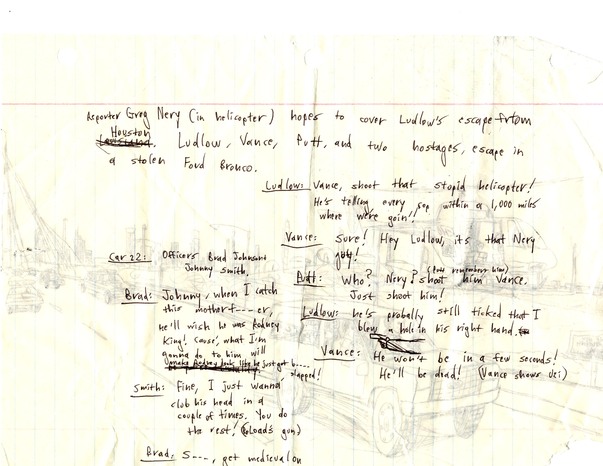 Reporter Greg Nery (in helicopter) hopes to cover Ludlow's escape from
Houston
Louisiana. Ludlow, Vance, Putt, and two hostages, escape in
a stolen Ford Bronco.
Ludlow: Vance, shoot that stupid helicopter!
He's telling every within a 1,000 miles
where we're goin'!
Vance: Sure! Hey Ludlow, its that Nery
guy!
Putt: Who? Nery? shoot him Vance.
(Putt remembers him)
Just shoot him!
Ludlow: he's probally still ticked that I
blew a hole in his right hand.
Vance: He won't be in a few seconds!
He'll be dead! (Vance shows Uzi)
Car 22: Officers Brad Johnson &
Johnny Smith.
Brad: Johnny, when I catch
this motherf----er,
he'll wish he was Rodney
King! 'cause, what I'm
gonna do to him will
make Rodney look like he just got b----
slapped!
Smith: Fine, I just wanna
club his head in a
couple of times. You do
the rest! (Loads gun)
Brad: S---, get medieval on